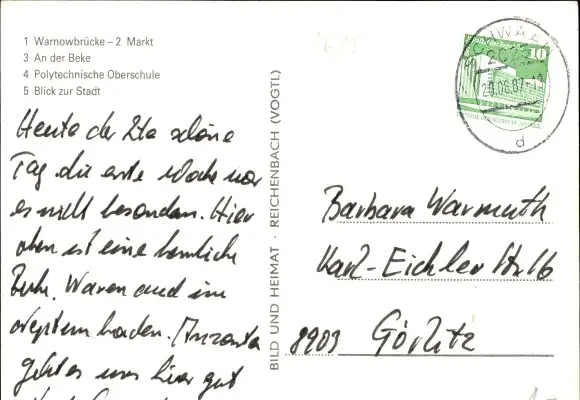 1 Warnowbrücke – 2 Markt
3 An der Beke
4 Polytechnische Oberschule
5 Blick zur Stadt
Heute der 2te schöne
Tag die erste Woche war
es nicht besonders. Hier
oben ist eine herrliche
Ruhe. Waren auch im
baden.
geht es uns hier gut
BILD UND HEIMAT · REICHENBACH (VOGTL)
SCHWAAN
10
20.06.87-12
d
Barbara Warmuth
Karl-Eichler Str 16
8903 Görlitz